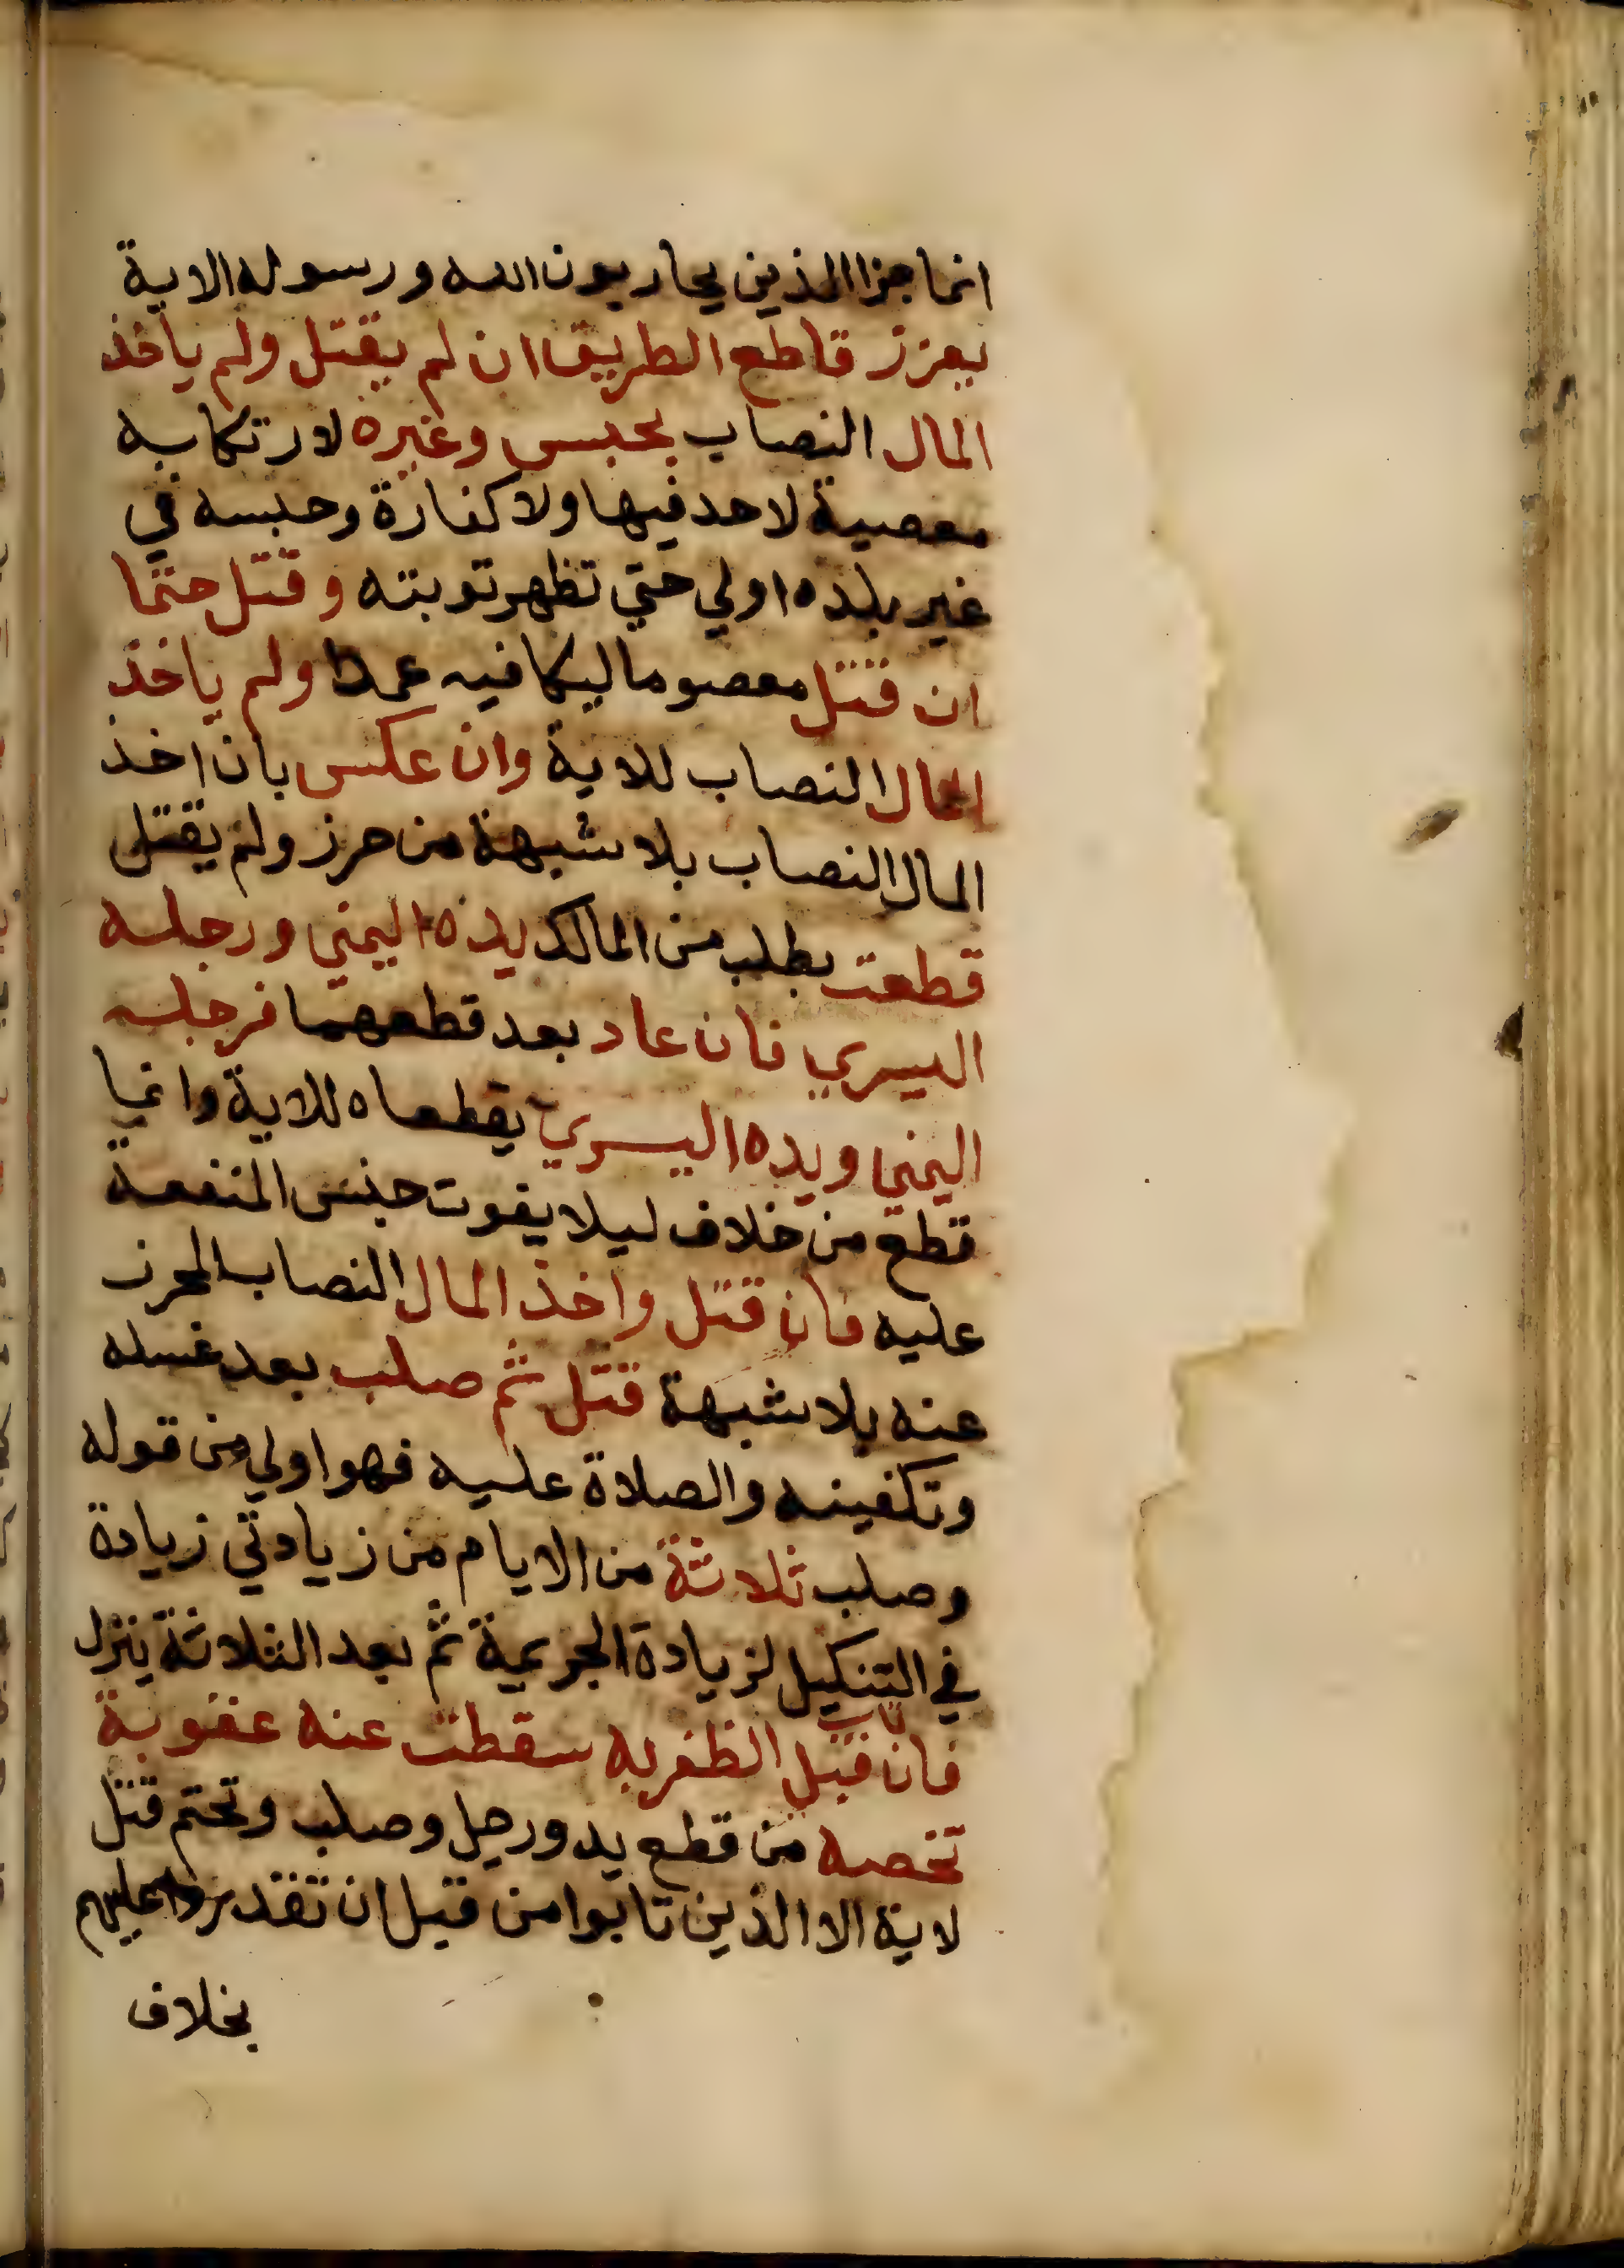 انما جزا الذين يحاربون الله ورسوله الاية
يعزر قاطع الطريق ان لم يقتل ولم ياخذ
المال النصاب بحبس وغيره لارتكابه
معصية لا حد فيها ولا كفارة وحبسه في
غير بلده اولي حتي تظهر توبته وقتل حتما
ان قتل معصوما ليكافيه عمدا ولم ياخذ
المال النصاب للاية وان عكس بان اخذ
المال النصاب بلا شبهة من حرز ولم يقتل
قطعت بطلب من المالك يده اليمني ورجله
اليسري فان عاد بعد قطعهما فرجله
اليمني ويده اليسري يقطعاه للاية وانما
قطع من خلاف ليلا يفوت جنس المنفعة
عليه فان قتل واخذ المال النصاب المحرز
عنه بلا شبهة قتل ثم صلب بعد غسله
وتكفينه والصلاة عليه فهو اولي من قوله
وصلب ثلاثة من الايام من زيادتي زيادة
في التنكيل لزيادة الجريمة ثم بعد الثلاثة ينزل
فان تاب قبل الظفر به سقطت عنه عقوبة
تخصه من قطع يد ورجل وصلب وتحتم قتل
لاية الا الذين تابوا من قبل ان تقدروا عليهم
بخلاف